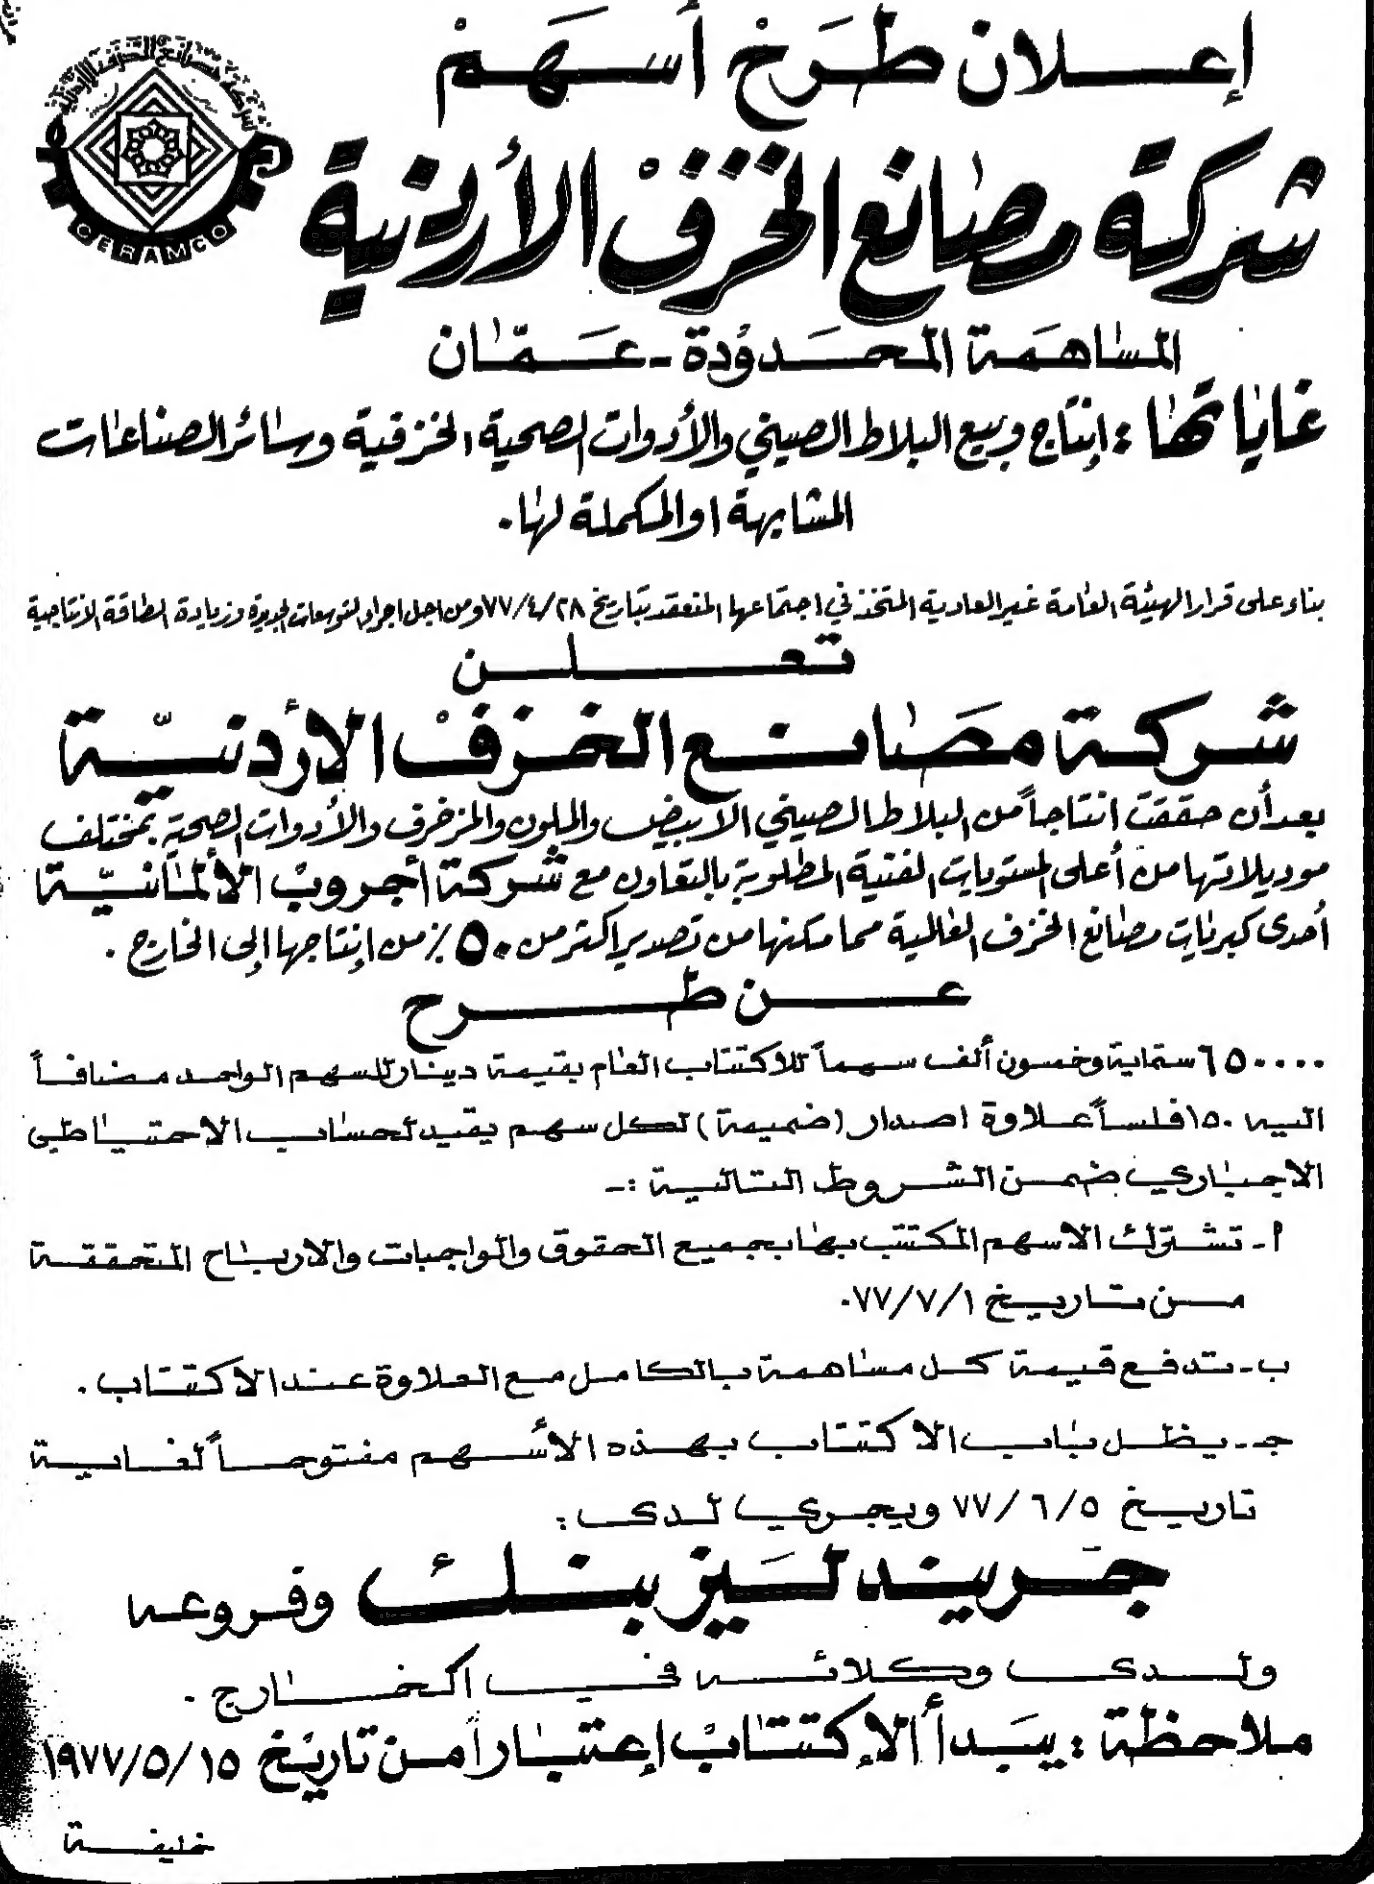 إعلان طرح أسهم
شركة مصانع الخزف الأردنية
CERAMCO
المساهمة المحدودة - عمان
غاياتها : إنتاج وبيع البلاط الصيني والأدوات الصحية الخزفية وسائر الصناعات
المشابهة او المكملة لها .
بناء على قرار الهيئة العامة غير العادية المتخذ في اجتماعها المنعقد بتاريخ ٧٧/٤/٢٨ ومن اجل اجراء التوسعات الجديدة وزيادة الطاقة الانتاجية
تعلن
شركة مصانع الخزف الأردنية
بعد أن حققت انتاجاً من البلاط الصيني الابيض والملون والمزخرف والأدوات الصحية بمختلف
موديلاتها من أعلى المستويات الفنية المطلوبة بالتعاون مع شركة أجروب الألمانية
أحدى كبريات مصانع الخزف العالمية مما مكنها من تصدير اكثر من ٥٠٪ من إنتاجها إلى الخارج .
عن طرح
٦٥٠٠٠٠ ستماية وخمسون ألف سهماً للاكتتاب العام بقيمة دينار للسهم الواحد مضافاً
اليه ١٥٠ فلساً علاوة اصدار (ضميمة) لكل سهم يقيد لحساب الاحتياطي
الاجباري ضمن الشروط التالية :-
أ- تشترك الاسهم المكتتب بها بجميع الحقوق والواجبات والارباح المتحققة
من تاريخ ٧٧/٧/١.
ب- تدفع قيمة كل مساهمة بالكامل مع العلاوة عند الاكتتاب .
جـ- يظل باب الاكتتاب بهذه الأسهم مفتوحاً لغاية
تاريخ ٧٧/٦/٥ ويجري لدى :
جريندليز بنك وفروعه
ولدى وكلائه في الخارج .
ملاحظة : يبدأ الإكتتاب إعتباراً من تاريخ ١٩٧٧/٥/١٥
خليفة